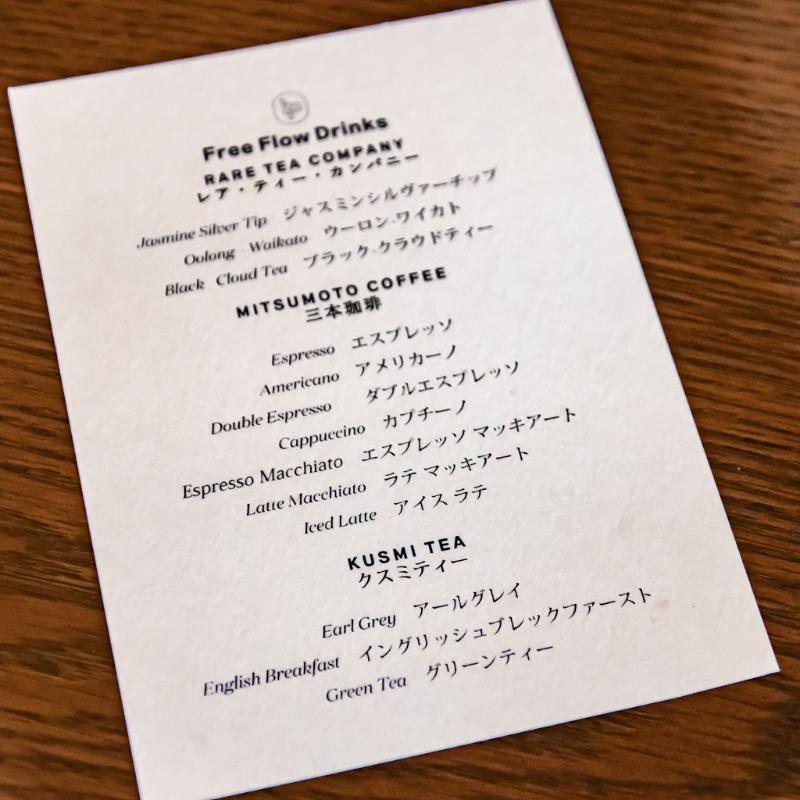 Free Flow Drinks
RARE TEA COMPANY
レア・ティー・カンパニー
Jasmine Silver Tip ジャスミンシルヴァーチップ
Oolong - Waikato ウーロン-ワイカト
Black Cloud Tea ブラック-クラウドティー
MITSUMOTO COFFEE
三本珈琲
Espresso エスプレッソ
Americano アメリカーノ
Double Espresso ダブルエスプレッソ
Cappuccino カプチーノ
Espresso Macchiato エスプレッソ マッキアート
Latte Macchiato ラテ マッキアート
Iced Latte アイス ラテ
KUSMI TEA
クスミティー
Earl Grey アールグレイ
English Breakfast イングリッシュブレックファースト
Green Tea グリーンティー